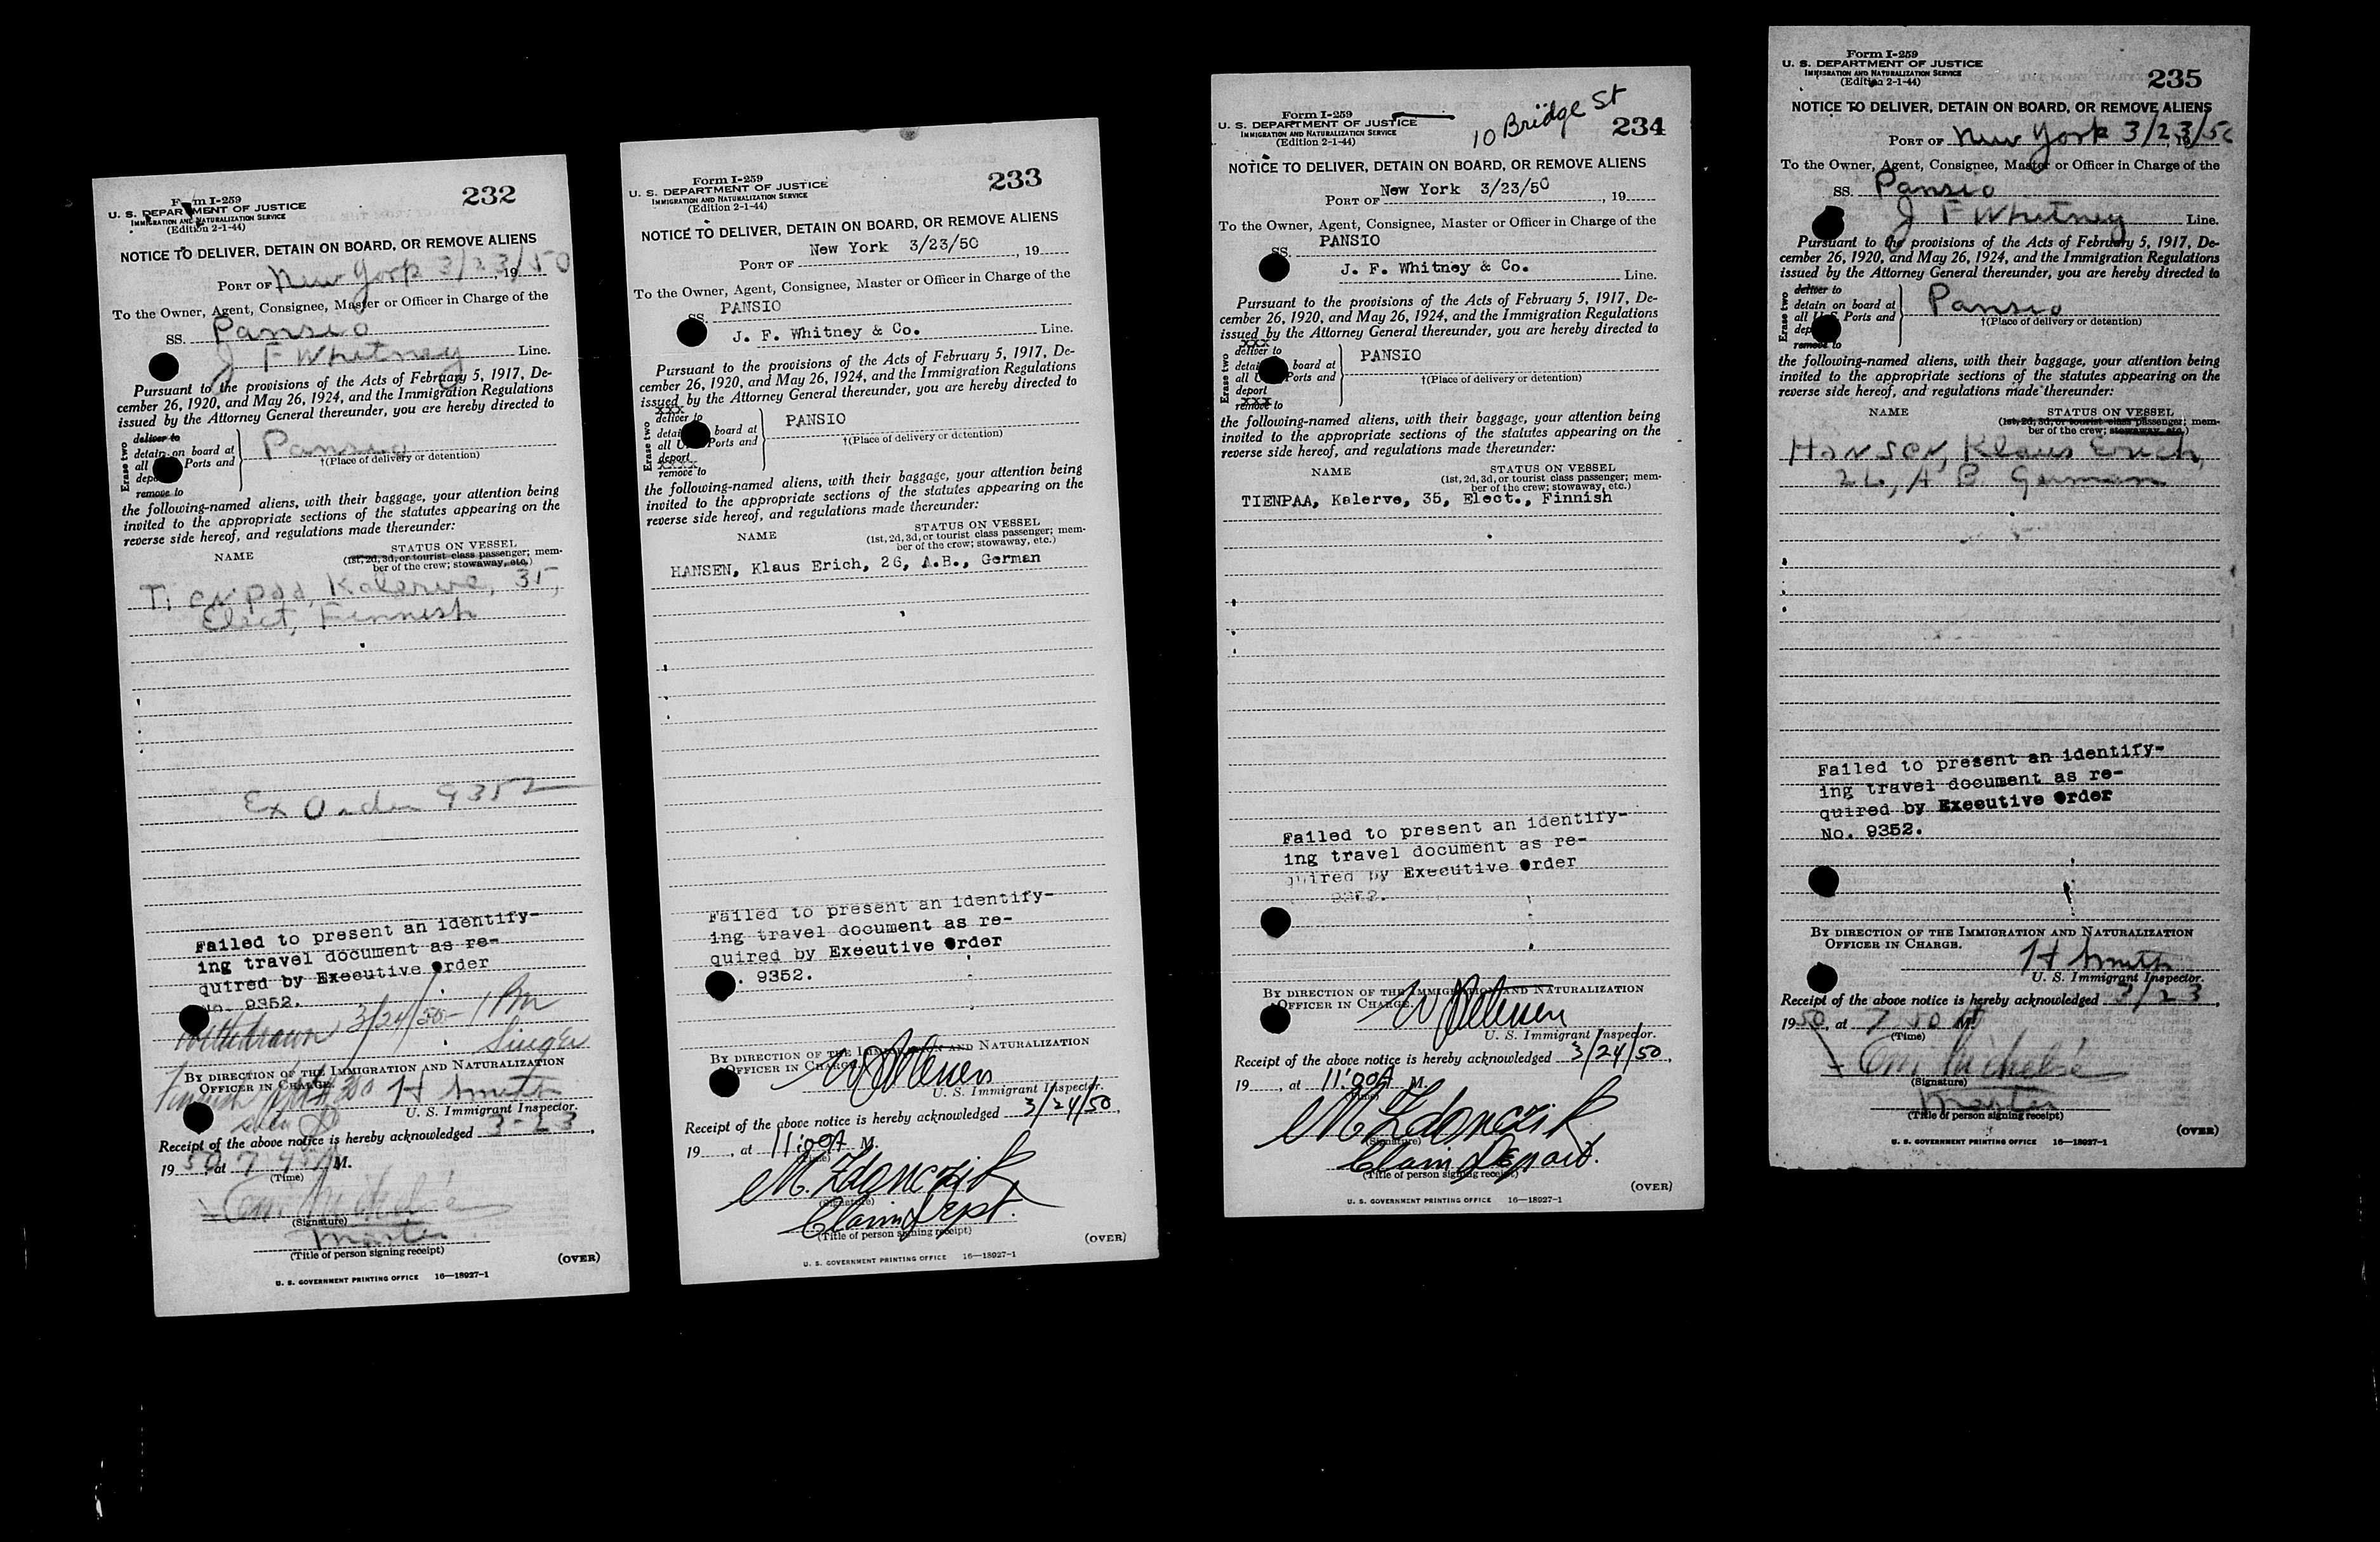 Form I-259
U. S. DEPARTMENT OF JUSTICE
IMMIGRATION AND NATURALIZATION SERVICE
(Edition 2-1-44)
232
NOTICE TO DELIVER, DETAIN ON BOARD, OR REMOVE ALIENS
PORT OF New York 3/23/50, 19
To the Owner, Agent, Consignee, Master or Officer in Charge of the
SS. Pansio
J F Whitney Line.
Pursuant to the provisions of the Acts of February 5, 1917, De-
cember 26, 1920, and May 26, 1924, and the Immigration Regulations
issued by the Attorney General thereunder, you are hereby directed to
Erase two
deliver to
detain on board at
all Ports and
remove to
Pansio
†(Place of delivery or detention)
the following-named aliens, with their baggage, your attention being
invited to the appropriate sections of the statutes appearing on the
reverse side hereof, and regulations made thereunder:
NAME STATUS ON VESSEL
(1st, 2d, 3d, or tourist class passenger; mem-
ber of the crew; stowaway, etc.)
Tienpaa, Kalerve, 35,
Elect, Finnish
Ex Order 9352
Failed to present an identify-
ing travel document as re-
quired by Executive Order
No. 9352.
Withdrawn 3/24/50 - 1 PM
Singer
BY DIRECTION OF THE IMMIGRATION AND NATURALIZATION
OFFICER IN CHARGE.
H Smith
U. S. Immigrant Inspector.
Receipt of the above notice is hereby acknowledged 3-23,
1950, at 7 M.
(Time)
(Signature)
Master
(Title of person signing receipt)
(OVER)
U. S. GOVERNMENT PRINTING OFFICE 16—18927-1
Form I-259
U. S. DEPARTMENT OF JUSTICE
IMMIGRATION AND NATURALIZATION SERVICE
(Edition 2-1-44)
233
NOTICE TO DELIVER, DETAIN ON BOARD, OR REMOVE ALIENS
PORT OF New York 3/23/50, 19
To the Owner, Agent, Consignee, Master or Officer in Charge of the
SS. PANSIO
J. F. Whitney & Co. Line.
Pursuant to the provisions of the Acts of February 5, 1917, De-
cember 26, 1920, and May 26, 1924, and the Immigration Regulations
issued by the Attorney General thereunder, you are hereby directed to
Erase two
xxx
deliver to
board at
all Ports and
deport
xxxx
remove to
PANSIO
†(Place of delivery or detention)
the following-named aliens, with their baggage, your attention being
invited to the appropriate sections of the statutes appearing on the
reverse side hereof, and regulations made thereunder:
NAME STATUS ON VESSEL
(1st, 2d, 3d, or tourist class passenger; mem-
ber of the crew; stowaway, etc.)
HANSEN, Klaus Erich, 26, A.B., German
Failed to present an identify-
ing travel document as re-
quired by Executive Order
. 9352.
BY DIRECTION OF THE IMMIGRATION AND NATURALIZATION
OFFICER IN CHARGE.
U. S. Immigrant Inspector.
Receipt of the above notice is hereby acknowledged 3/24/50,
19, at 11:00A M.
(Time)
M. Zdonczik
(Signature)
Claim Dept.
(Title of person signing receipt)
(OVER)
U. S. GOVERNMENT PRINTING OFFICE 16—18927-1
Form I-259
U. S. DEPARTMENT OF JUSTICE
IMMIGRATION AND NATURALIZATION SERVICE
(Edition 2-1-44)
10 Bridge St
234
NOTICE TO DELIVER, DETAIN ON BOARD, OR REMOVE ALIENS
PORT OF New York 3/23/50, 19
To the Owner, Agent, Consignee, Master or Officer in Charge of the
SS. PANSIO
J. F. Whitney & Co. Line.
Pursuant to the provisions of the Acts of February 5, 1917, De-
cember 26, 1920, and May 26, 1924, and the Immigration Regulations
issued by the Attorney General thereunder, you are hereby directed to
Erase two
xxx
deliver to
board at
all Ports and
deport
xxx
remove to
PANSIO
†(Place of delivery or detention)
the following-named aliens, with their baggage, your attention being
invited to the appropriate sections of the statutes appearing on the
reverse side hereof, and regulations made thereunder:
NAME STATUS ON VESSEL
(1st, 2d, 3d, or tourist class passenger; mem-
ber of the crew; stowaway, etc.)
TIENPAA, Kalerve, 35, Elect., Finnish
Failed to present an identify-
ing travel document as re-
quired by Executive Order
9352.
BY DIRECTION OF THE IMMIGRATION AND NATURALIZATION
OFFICER IN CHARGE.
U. S. Immigrant Inspector.
Receipt of the above notice is hereby acknowledged 3/24/50,
19, at 11:00A M.
(Time)
M Zdonczik
(Signature)
Claim Depart.
(Title of person signing receipt)
(OVER)
U. S. GOVERNMENT PRINTING OFFICE 16—18927-1
Form I-259
U. S. DEPARTMENT OF JUSTICE
IMMIGRATION AND NATURALIZATION SERVICE
(Edition 2-1-44)
235
NOTICE TO DELIVER, DETAIN ON BOARD, OR REMOVE ALIENS
PORT OF New York 3/23/50, 19
To the Owner, Agent, Consignee, Master or Officer in Charge of the
SS. Pansio
J F Whitney Line.
Pursuant to the provisions of the Acts of February 5, 1917, De-
cember 26, 1920, and May 26, 1924, and the Immigration Regulations
issued by the Attorney General thereunder, you are hereby directed to
Erase two
deliver to
detain on board at
all U.S. Ports and
remove to
Pansio
†(Place of delivery or detention)
the following-named aliens, with their baggage, your attention being
invited to the appropriate sections of the statutes appearing on the
reverse side hereof, and regulations made thereunder:
NAME STATUS ON VESSEL
(1st, 2d, 3d, or tourist class passenger; mem-
ber of the crew; stowaway, etc.)
Hansen, Klaus Erich,
26, A B German
Failed to present an identify-
ing travel document as re-
quired by Executive Order
No. 9352.
BY DIRECTION OF THE IMMIGRATION AND NATURALIZATION
OFFICER IN CHARGE.
H Smith
U. S. Immigrant Inspector.
Receipt of the above notice is hereby acknowledged 3/23,
1950, at 7 50 M.
(Time)
(Signature)
Master
(Title of person signing receipt)
(OVER)
U. S. GOVERNMENT PRINTING OFFICE 16—18927-1